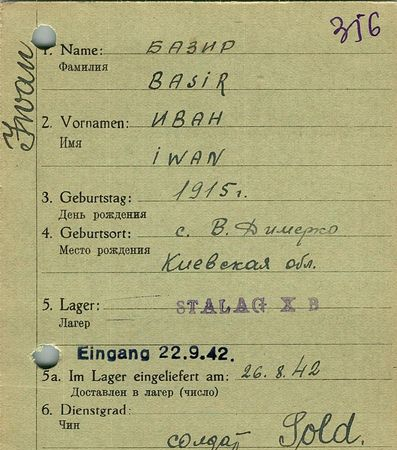 356
Iwan
1. Name: БАЗИР
Фамилия
BASIR
2. Vornamen: ИВАН
Имя
IWAN
3. Geburtstag: 1915г.
День рождения
4. Geburtsort: с. В. Димерко
Место рождения
Киевская обл.
5. Lager: STALAG X B
Лагер
Eingang 22.9.42.
5a. Im Lager eingeliefert am: 26.8.42
Доставлен в лагер (число)
6. Dienstgrad:
Чин
солдат Sold.